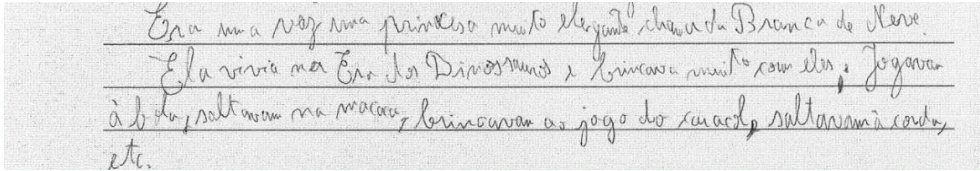 Era uma vez uma princesa muito elegante chamada Branca de Neve.
Ela vivia na Era dos Dinossauros e brincava muito com eles. Jogavam
à bola, saltavam na macaca, brincavam ao jogo do caracol, saltavam à corda,
etc.